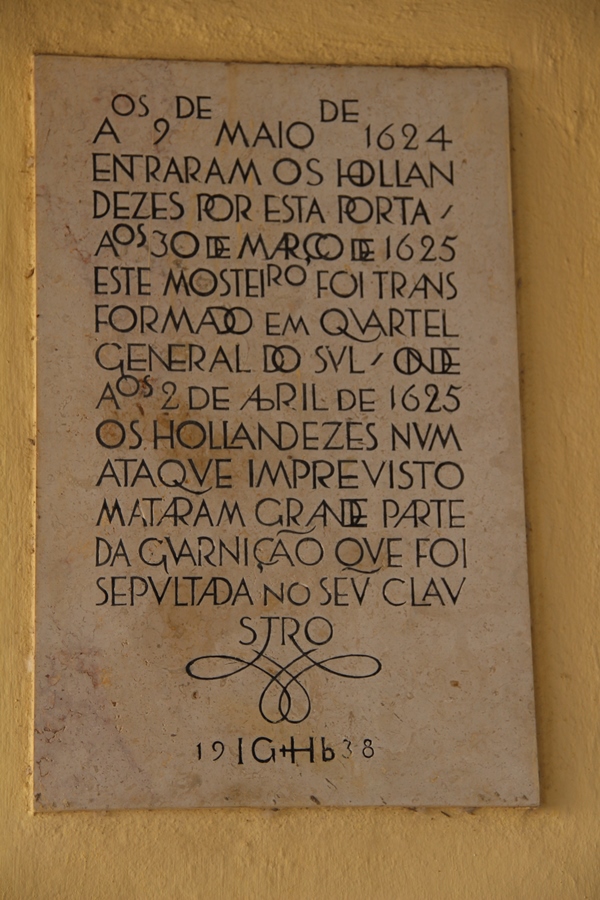 AOS 9 DE MAIO DE 1624
ENTRARAM OS HOLLAN
DEZES POR ESTA PORTA /
AOS 30 DE MARÇO DE 1625
ESTE MOSTEIRO FOI TRANS
FORMADO EM QVARTEL
GENERAL DO SVL / ONDE
AOS 2 DE ABRIL DE 1625
OS HOLLANDEZES NVM
ATAQVE IMPREVISTO
MATARAM GRANDE PARTE
DA GVARNIÇÃO QVE FOI
SEPVLTADA NO SEV CLAV
STRO
19 IG+Hb 38